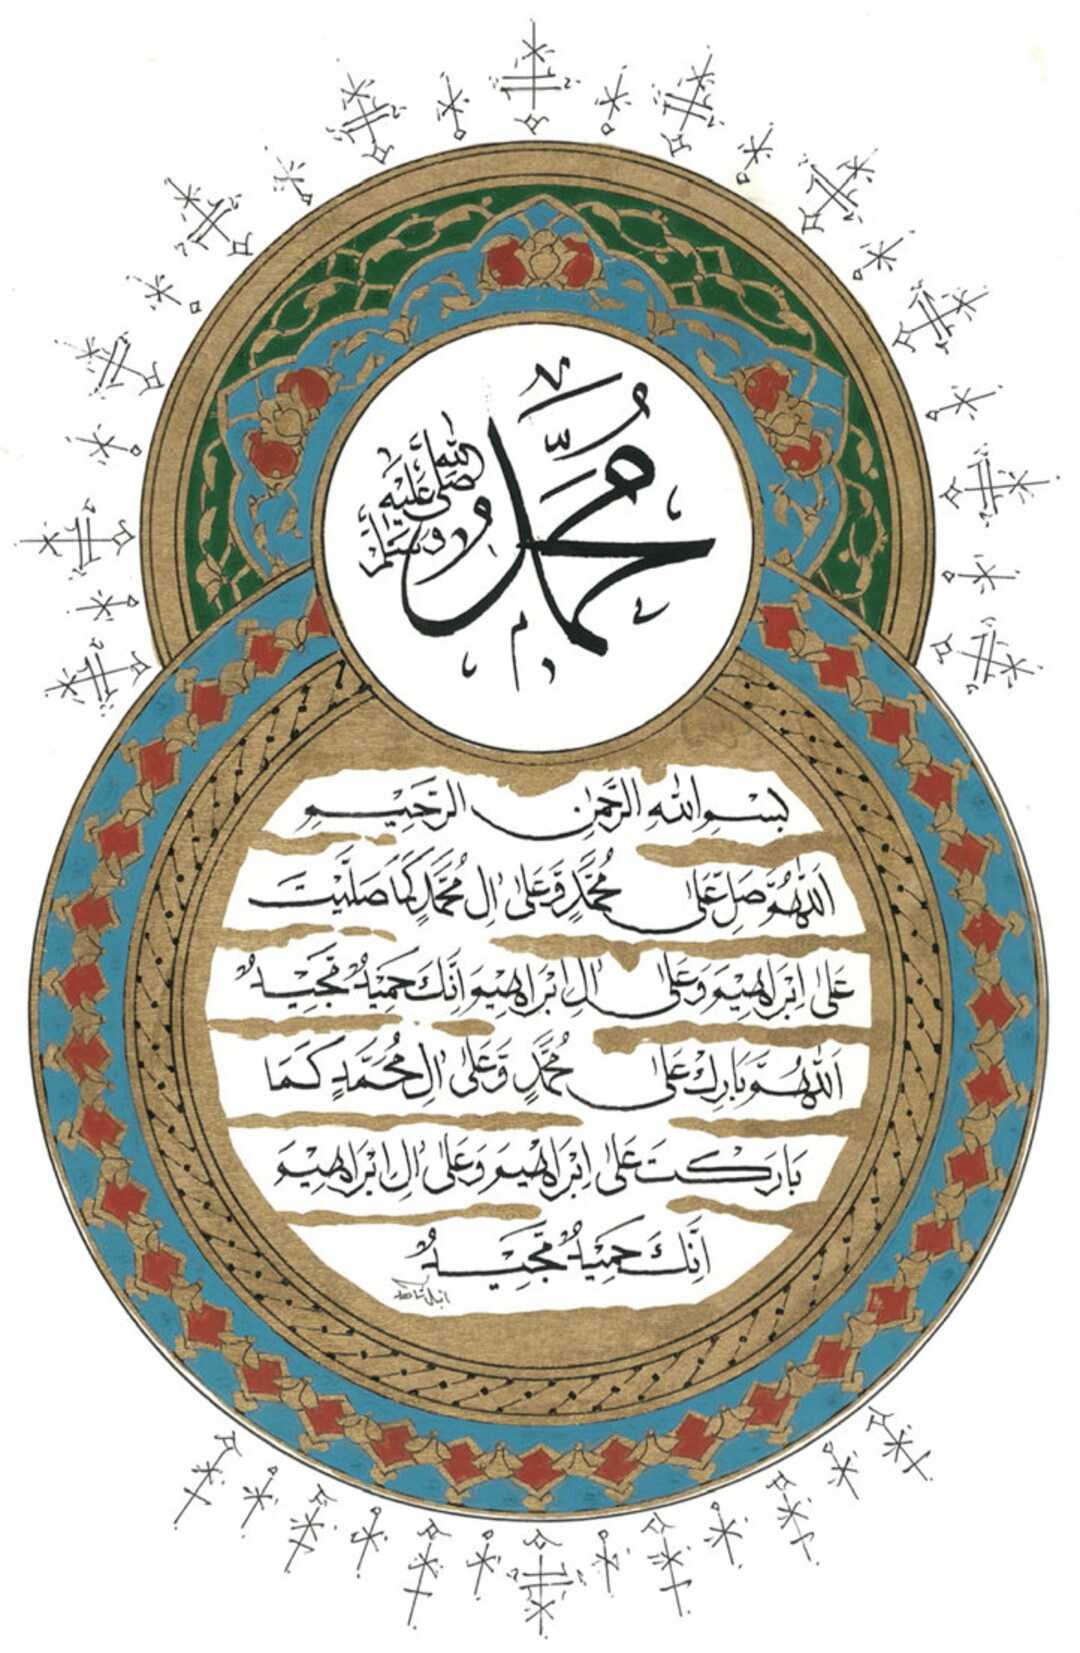 محمد
صلى الله عليه
وسلم
بِسْمِ اللهِ الرَّحْمٰنِ الرَّحِيْمِ
اَللّٰهُمَّ صَلِّ عَلٰى مُحَمَّدٍ وَّعَلٰى اٰلِ مُحَمَّدٍ كَمَا صَلَّيْتَ
عَلٰى اِبْرَاهِيْمَ وَعَلٰى اٰلِ اِبْرَاهِيْمَ اِنَّكَ حَمِيْدٌ مَّجِيْدٌ
اَللّٰهُمَّ بَارِكْ عَلٰى مُحَمَّدٍ وَّعَلٰى اٰلِ مُحَمَّدٍ كَمَا
بَارَكْتَ عَلٰى اِبْرَاهِيْمَ وَعَلٰى اٰلِ اِبْرَاهِيْمَ
اِنَّكَ حَمِيْدٌ مَّجِيْدٌ